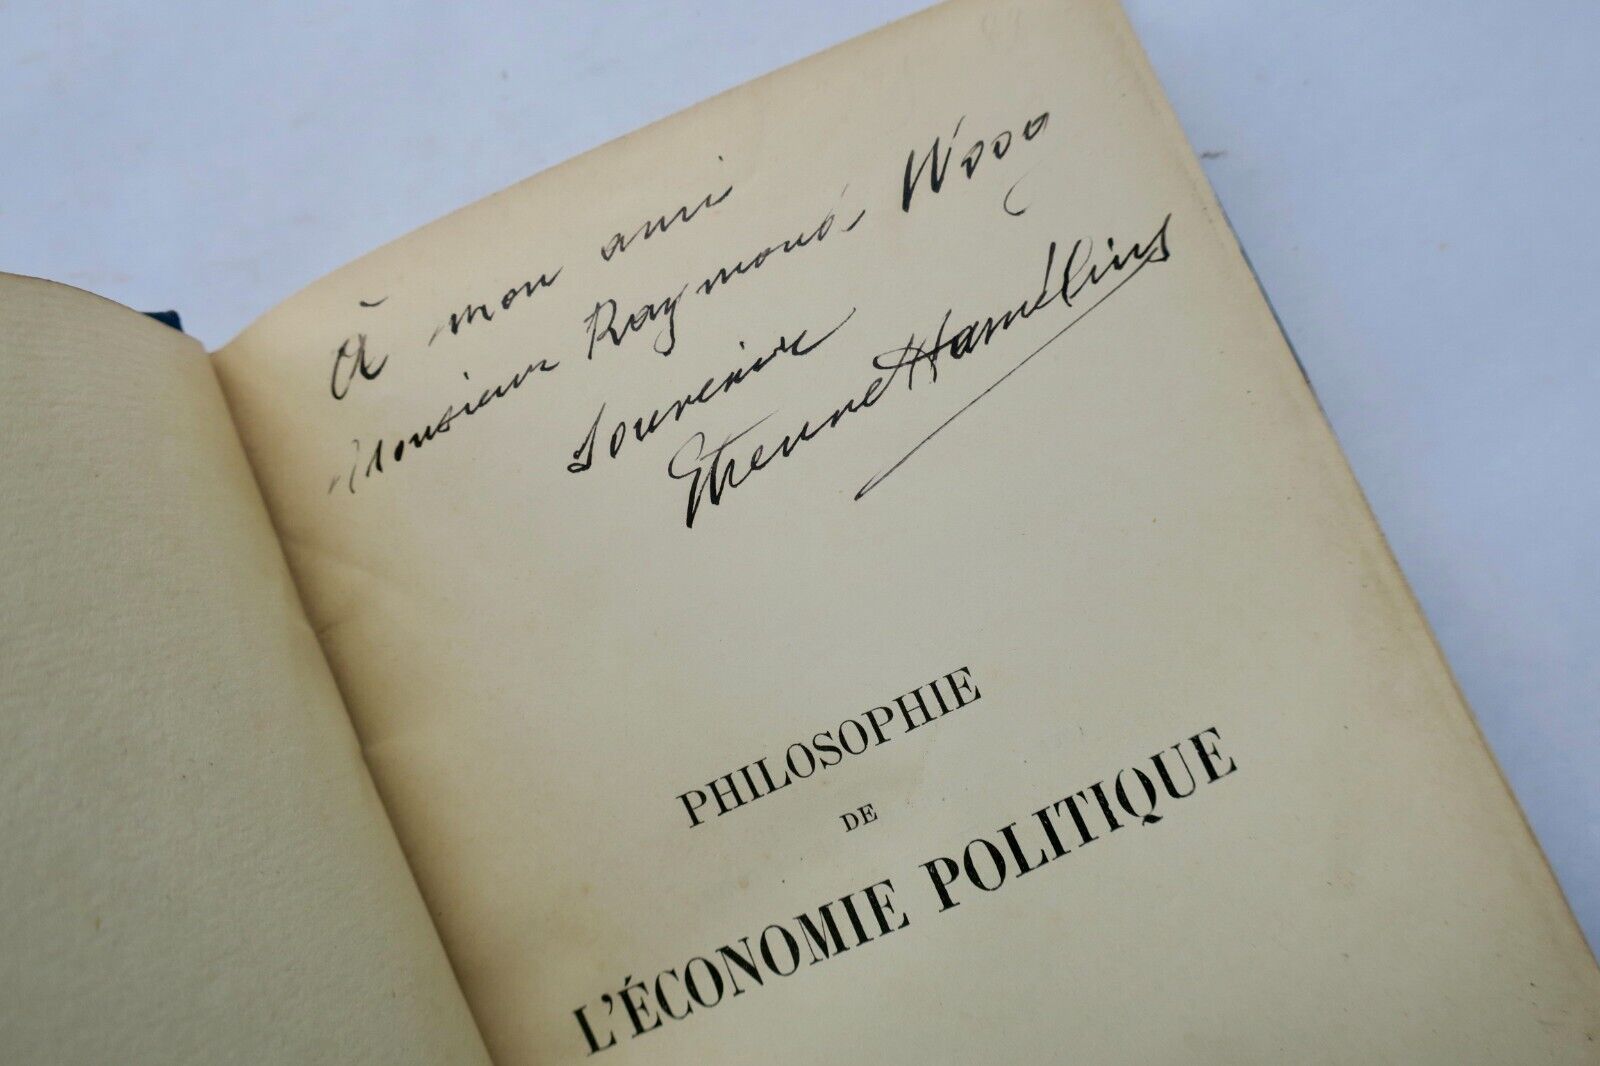 À mon ami
Monsieur Raymond Woog
Souvenir
Etienne Hamélius
PHILOSOPHIE
DE
L'ÉCONOMIE POLITIQUE